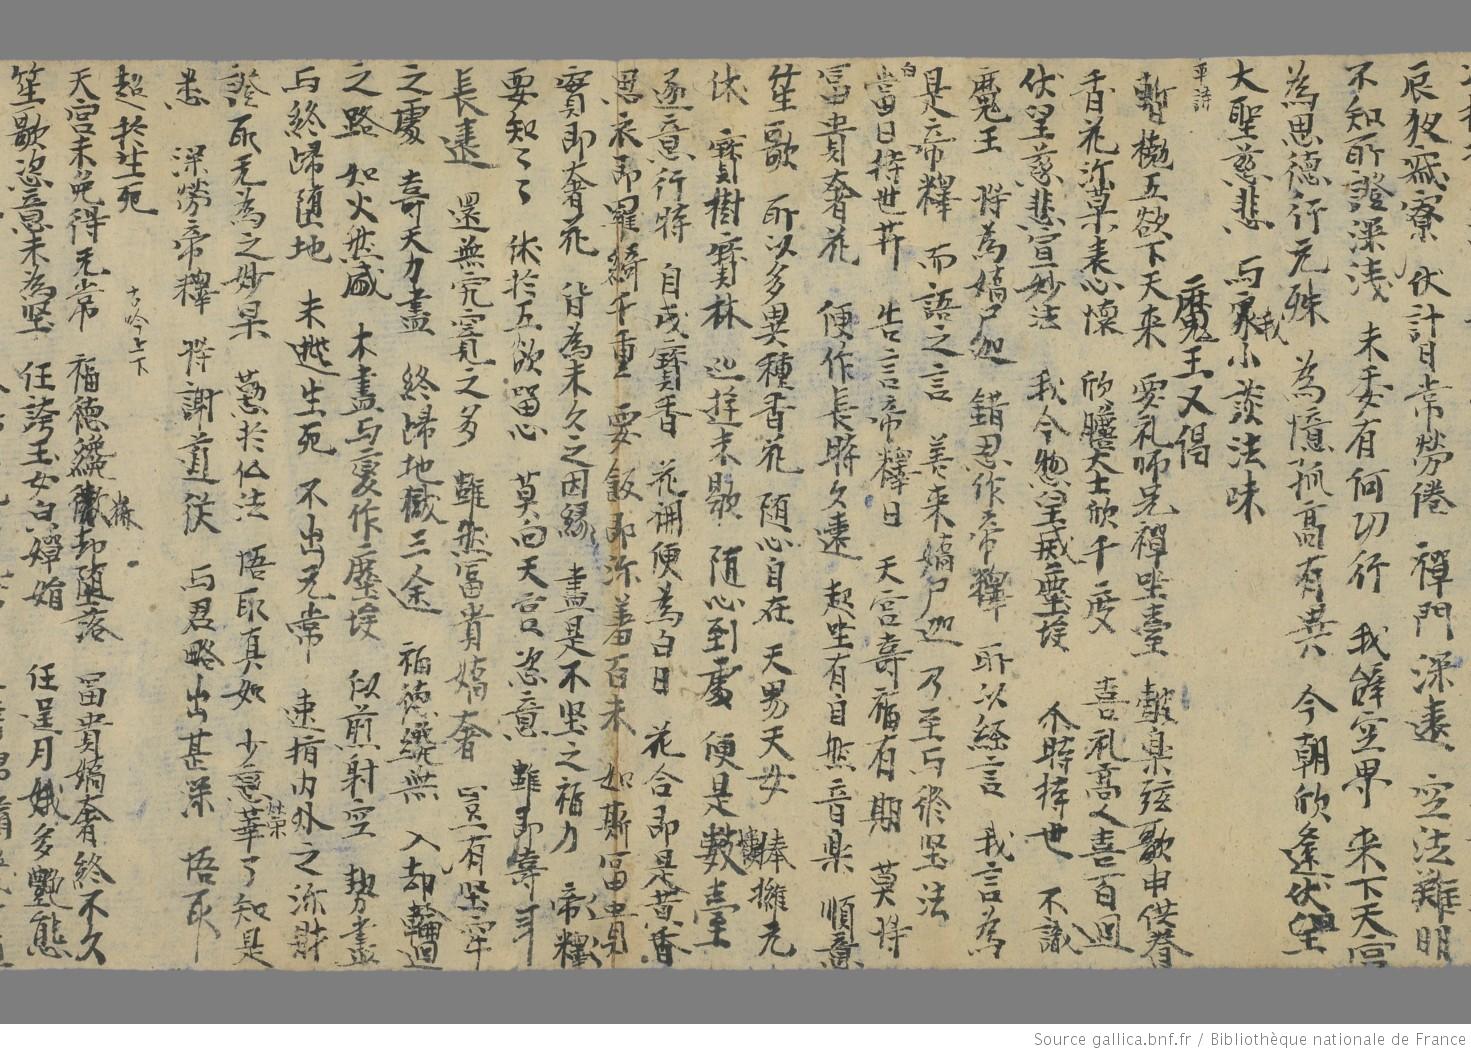 辰夜寂寥 伏計日常勞倦 禪門深遠 空法難明
不知所證深淺 未委有何功行 我辞空界 來下天宮
為思德行无殊 為憶孤高有異 今朝欣逢伏望
大聖慈悲 与我小談法味
平詩
魔王又偈
暫拋五欲下天來 要礼師兄禪坐臺 皷樂弦歌申供養
香花沂菓表心懷 欣瞻大士欣千度 喜礼高人喜百迴
伏望慈悲宣妙法 我今惣望滅塵埃 尒時持世 不識
魔王 將為嬌尸迦 錯忍作帝釋 所以經言 我言為
是帝釋 而語之言 善来嬌尸迦 乃至与修坚法
白
當日持世菩 告言帝釋曰 天宮壽福有期 莫將
冨貴奢花 便作長時久遠 起坐有自然音樂 順意
笙歌 所以多異種香花 随心自在 天男天女 捧擁无
休 寳樹寳林 巡遊未歇 随心到處 便是樓臺
逐意行時 自成寳香 花開便為白日 花合即是黃昏
思衣即羅綺千重 要飯即珎羞百未 如斯冨貴
實即奢花 皆為未久之因緣 盡是不坚之福力 帝釋
要知々々 休於五欲留心 莫向天宮恣意 雖即壽年
長遠 還無究竟之多 雖然冨貴嬌奢 豈有坚牢
之處 壽夭力盡 終歸地獄三途 福德纔無 入却輪迴
之路 如火然盛 木盡与變作塵埃 似煎射空 勢盡
与終歸墮地 未逃生死 不出无常 速指內外之珎財
證取无為之妙果 懃於仏法 悟取真如 少戀榮華了知是
患 深勞帝釋 將謝道從 与君略出甚深 悟取
超於生死
古吟上下
天宮未免得无常 福德纔微却墮落 冨貴嬌奢終不久
笙歌恣意未為坚 任誇玉女白嬋娟 任逞月娥多艷態